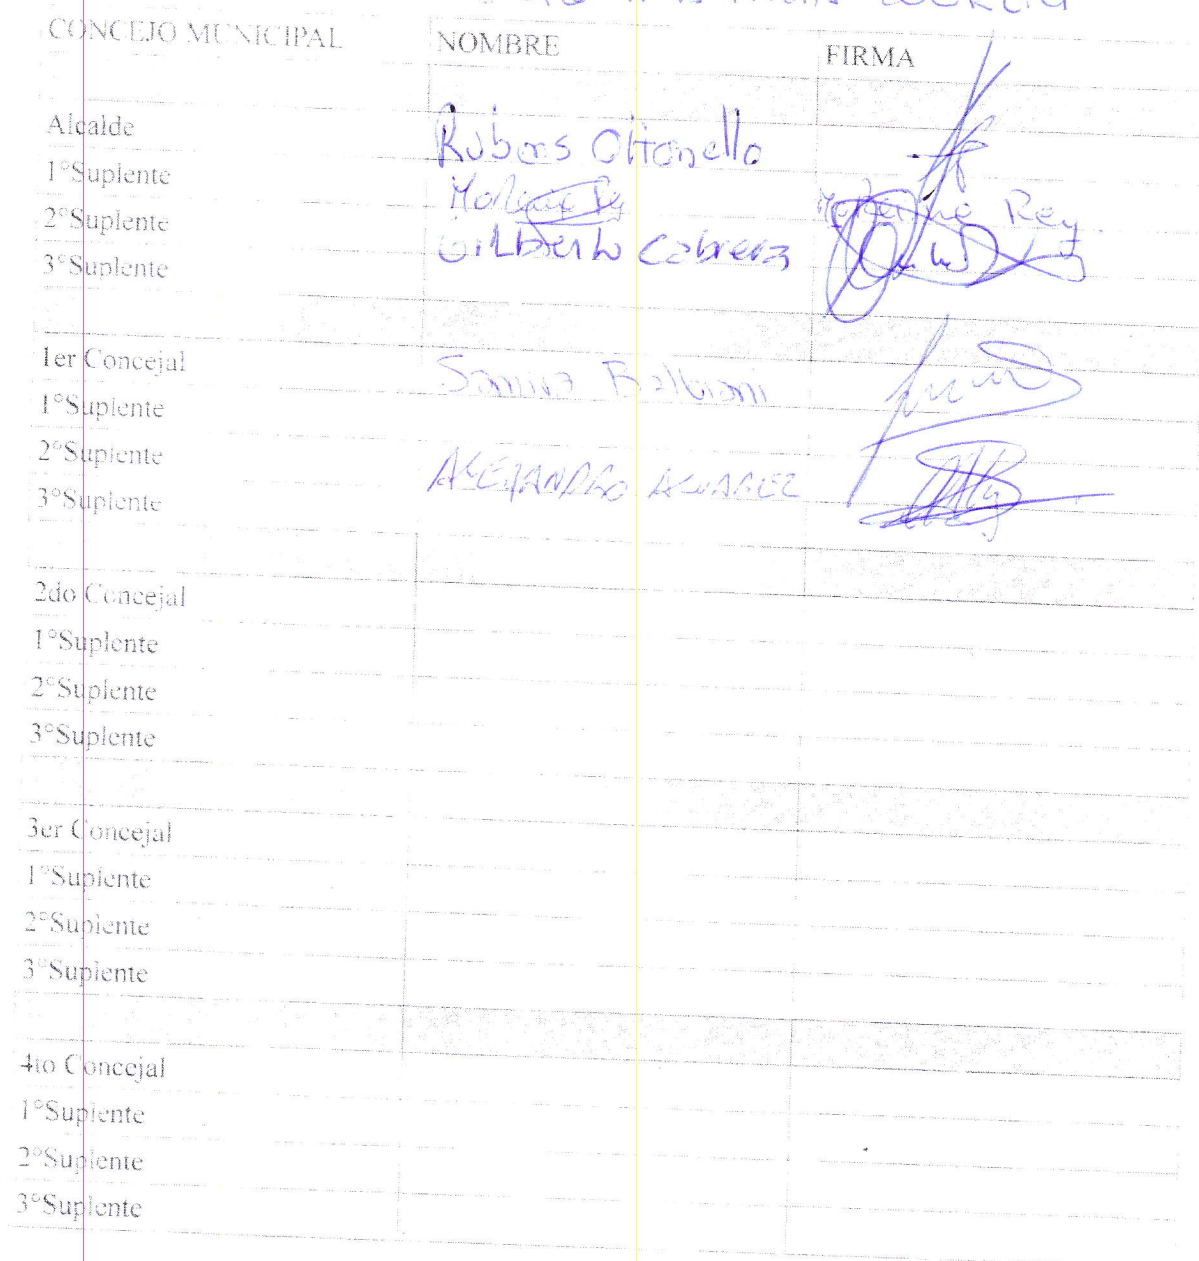 CONCEJO MUNICIPAL NOMBRE FIRMA
Alcalde Rubers Ottonello
1°Suplente
2°Suplente Rey.
3°Suplente Gilberto Cabrera
1er Concejal Balbiani
1°Suplente
2°Suplente ALEJANDRO ALVAREZ
3°Suplente
2do Concejal
1°Suplente
2°Suplente
3°Suplente
3er Concejal
1°Suplente
2°Suplente
3°Suplente
4to Concejal
1°Suplente
2°Suplente
3°Suplente